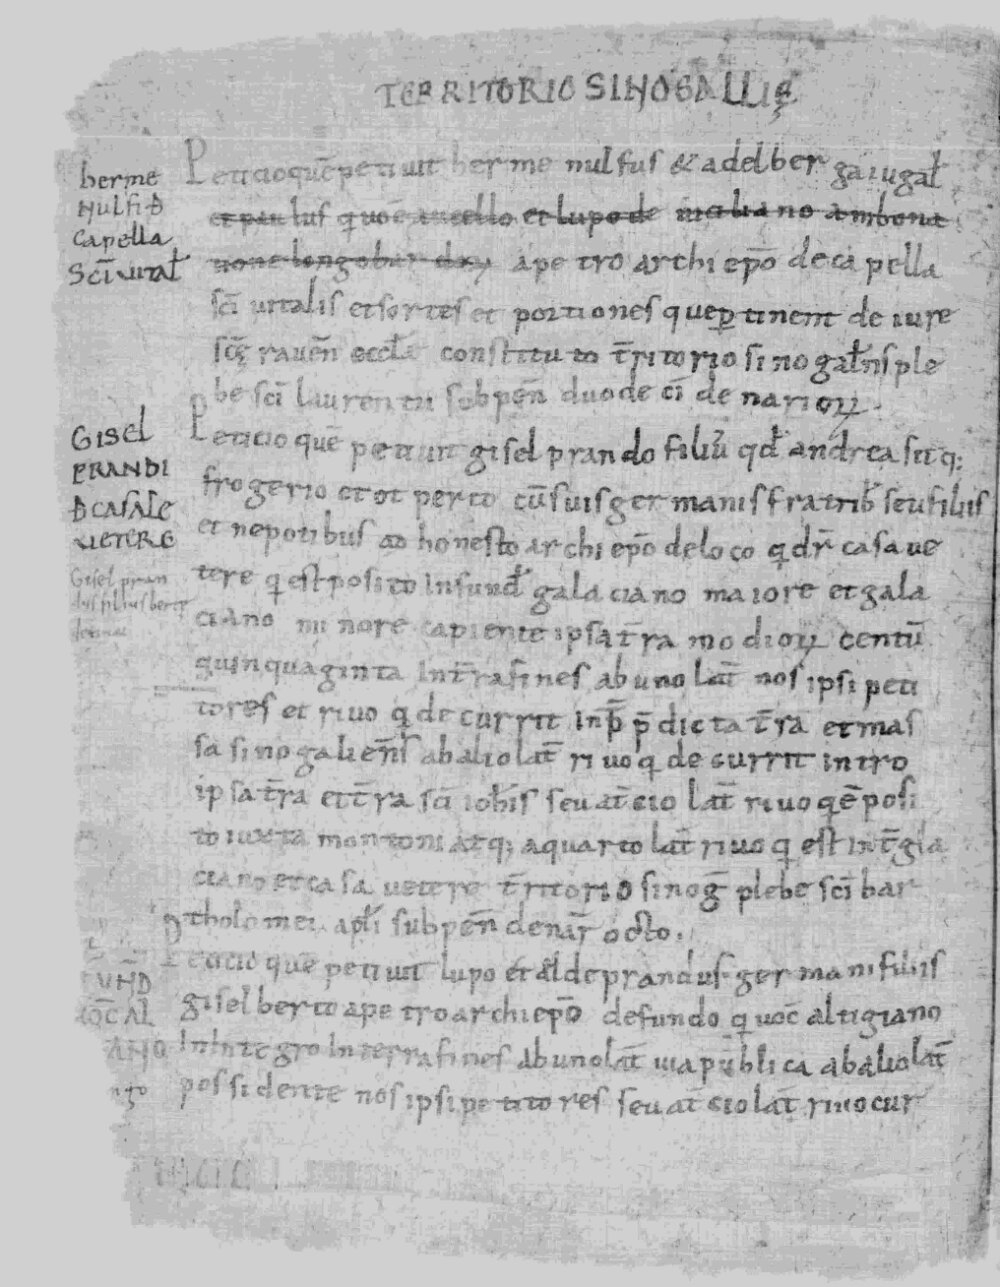 TERRITORIO SINOGALLIĘ
herme
nulfi Đ
capella
Scī uital̄
Peticio quē petiuit hermenulfus & adelberga iugal̄
et paulus q uoc̄ aucello et lupo de
none longobardoꝝ a petro archiep̄o de capella
sc̄i uitalis et sortes et portiones que ꝑtinent de iure
sc̄ę rauen̄ eccl̄e constituto t̄ritorio sinogal̄ns ple
be sc̄i laurentii sub pen̄ duodeci denarioꝝ.
GISEL
PRANDI
Đ CASALE
UETERE
Gisel pran
dus filius
Peticio quē petiuit giselprando filiū qd̄ andrea sitq;
frogerio et ot perto cū suis germanis fratrib̄ seu filiis
et nepotibus ab honesto archiep̄o de loco q dr̄ casa ue
tere q est posito In fund̄ galaciano maiore et gala
ciano minore capiente ipsa t̄ra modioꝝ centū
quinquaginta Int̄ra fines ab uno lat̄ nos ipsi peti
tores et riuo q decurrit in p̄dicta t̄ra et mas
sa sinogalien̄s ab alio lat̄ riuo q decurrit intro
ipsa t̄ra et t̄ra sc̄i ioh̄is seu at̄cio lat̄ riuo q ē posi
to iuxta montoni atq; a quarto lat̄ riuo q est int̄ gla
ciano et casa uetere t̄ritorio sinoḡ plebe sc̄i bar
tholomei apl̄i sub pen̄ denar̄ octo.
UND
QC̄ AL
ANO
Peticio quē petiuit lupo et aldeprandus germani filiis
giselberto a petro archiep̄o de fundo q uoc̄ altigiano
In Integro Interrafines ab uno lat̄ uia publica ab alio lat̄
possidente nos ipsi petitores seu at̄cio lat̄ riuo cur